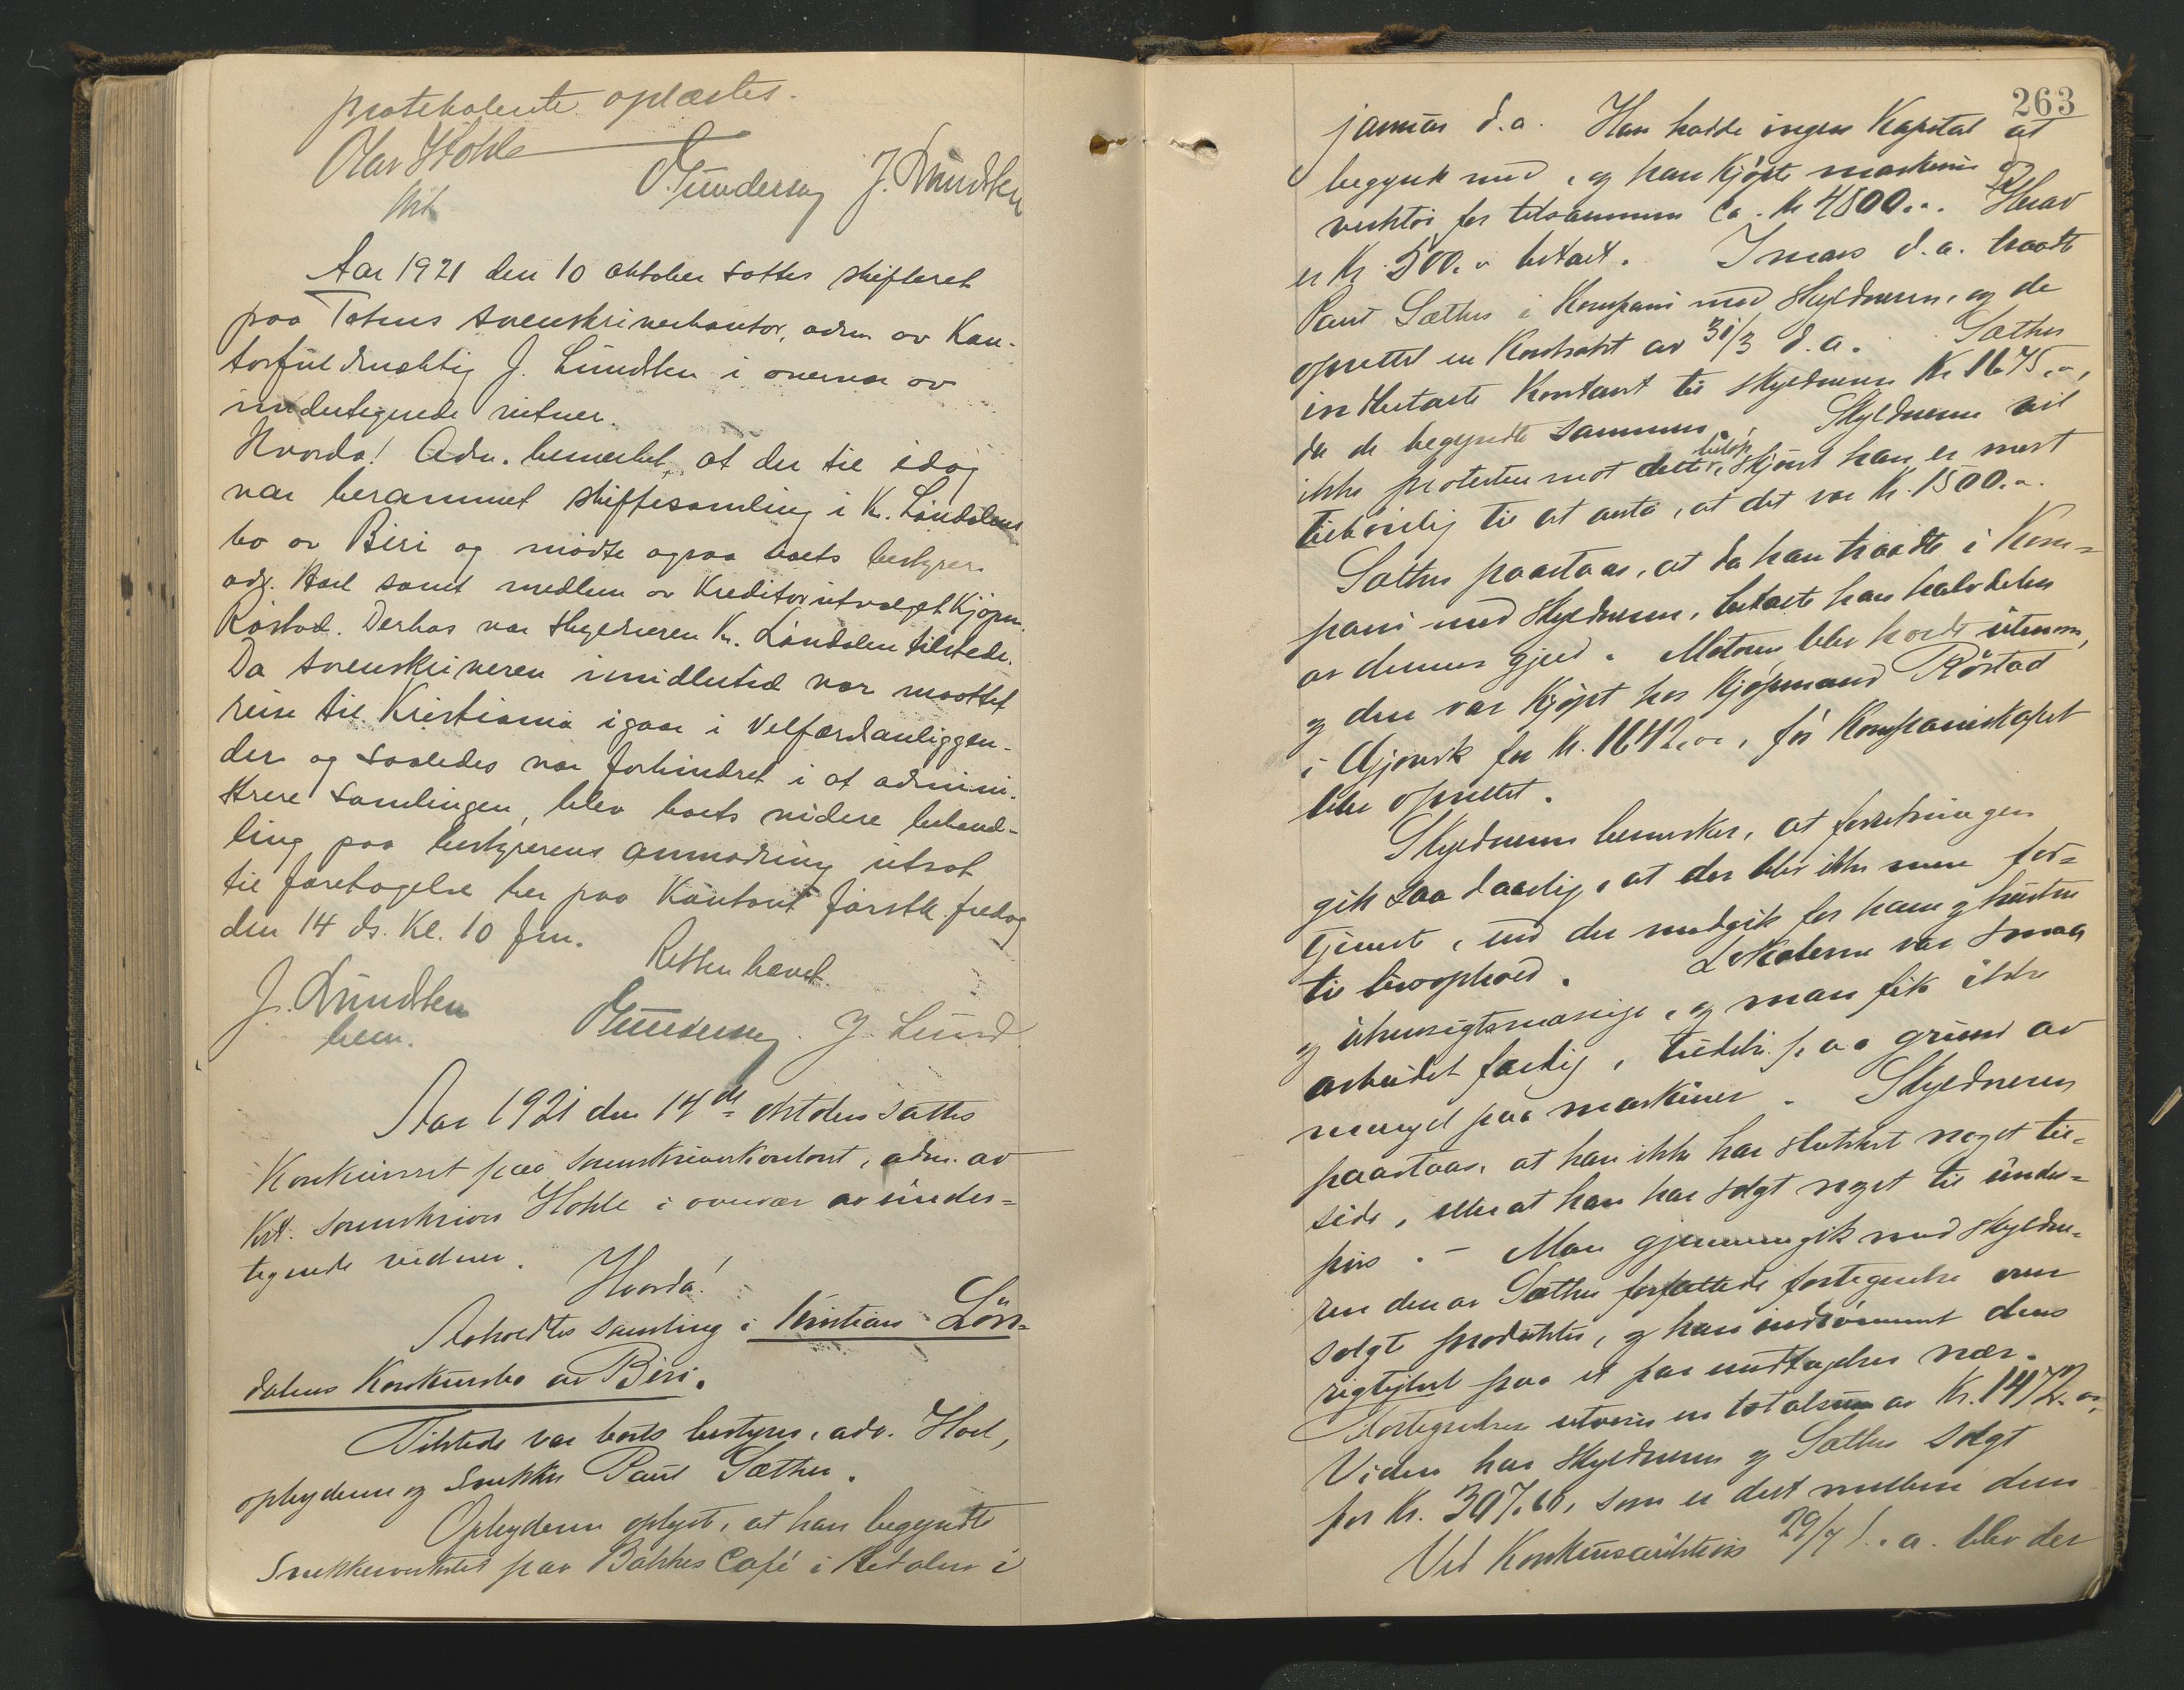 protokolerte oplæstes.
Olav Hohle
kst.
O. Gundersen J. Lundsten
Aar 1921 den 10 oktober sattes skifteret
paa Totens sorenskriverkontor, adm. av Kon-
torfuldmægtig J. Lundsten i overvær av
undertegnede vitner.
Hvorda! Adm. bemerket, at der til idag
var berammet skiftesamling i K. Löndalens
bo av Biri og mødte ogsaa boets bestyrer
adv. Hoel samt medlem av Kreditorutvalget Kjøpm.
Röstad. Derhos var skyldneren Kr. Löndalen tilstede.
Da sorenskriveren imidlertid var maattet
reise til Kristiania igaar i Velfærdsanliggen-
der og saaledes var forhindret i at admini-
strere samlingen, blev boets videre behand-
ling paa bestyrerens anmodning utsat
til foretagelse her paa Kontoret førstk. fredag
den 14 ds. Kl. 10 fm.
Retten hævet.
J. Lundsten
bem.
O. Gundersen. J. Lund
Aar 1921 den 14de oktober sattes
Konkursret paa sorenskriverkontoret, adm. av
Kst. sorenskriver Hohle i overvær av under-
tegnede vidner.
Hvorda!
Avholdtes samling i Kristian Lön-
dalens Konkursbo av Biri.
Tilstede var boets bestyrer, adv. Hoel,
opbyderen og snekker Paul Sæther.
Opbyderen oplyste, at han begyndte
Snekkerverksted paa Bakkes Café i Redalen i
263
januar d.a. Han hadde ingen Kapital at
begynde med, og han kjøpte maskiner og
verktöi for tilsammen ca. Kr 4800.00. Herav
er Kr. 500.00 betalt. I mars d.a. traadte
Paul Sæther i Kompani med skyldneren, og de
oprettet en Kontrakt av 31/3 d.a. Sæther
indbetalte Kontant til skyldneren Kr 1675.00,
da de begyndte sammen. Skyldneren vil
ikke protestere mot dette beløp, skjønt han er mest
tilböielig til at anta, at det var Kr. 1500.00.
Sæther paastaar, at da han traadte i Kom-
pani med skyldneren, betalte han halvdelen
av dennes gjeld. Motoren blev holdt utenom,
og den var kjøpt hos Kjøpmand Röstad
i Gjøvik for Kr. 1642.00, før Kompaniskapet
blev oprettet.
Skyldneren bemerker, at forretningen
gik saa daarlig, at der blev ikke mere for-
tjeneste, end der medgik for ham og hustru
til livsophold. Lokalerne var smaa
og uhensigtsmæssige, og man fik ikke
arbeidet færdig, tildels paa grund av
mangel paa maskiner. Skyldneren
paastaar, at han ikke har stukket noget til-
side, eller at han har solgt noget til under-
pris. – Man gjennemgik med skyldne-
ren den av Sæther forfattede fortegnelse over
solgt produkter, og han indrömmet dens
rigtighet paa et par undtagelser nær.
Fortegnelsen utviser en totalsum av Kr. 1472.00.
Viden har skyldneren og Sæther solgt
for Kr. 307.60, som er delt mellem dem
Ved Konkursauktion 29/7 d.a. blev der